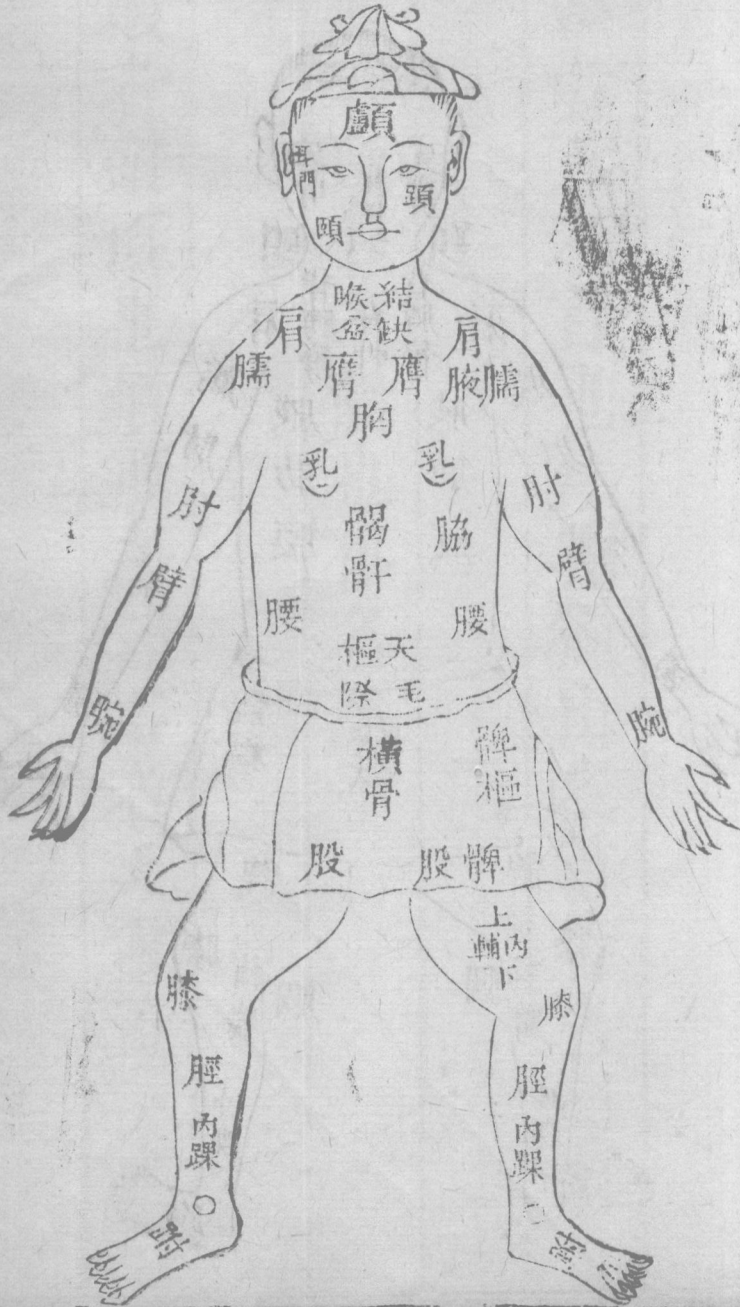 顱
耳門
頄
頤
結喉
缺盆
肩
肩
臑
膺
膺
腋
臑
胸
乳
乳
肘
肘
𩩲骬
脇
臂
臂
腰
腰
天樞
毛際
腕
腕
橫骨
髀樞
股
股
髀
上
內輔
下
膝
膝
脛
脛
內踝
內踝
跗